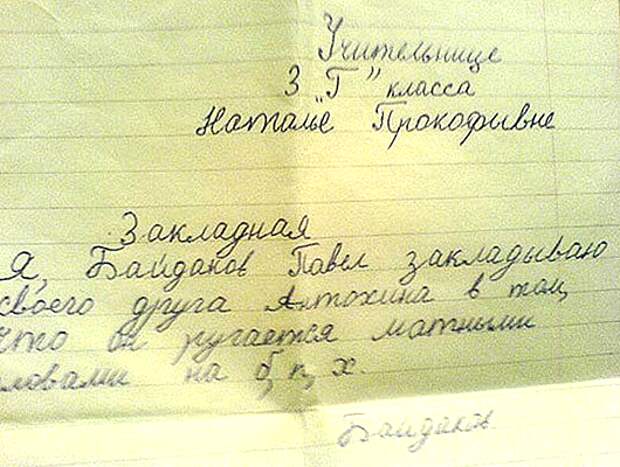 Учительнице
3 "Г" класса
Наталье Прокофывне
Закладная
Я, Байдаков Павел закладываю
своего друга Антохина в том,
что он ругается матными
словами на б, п, х.
Байдаков.